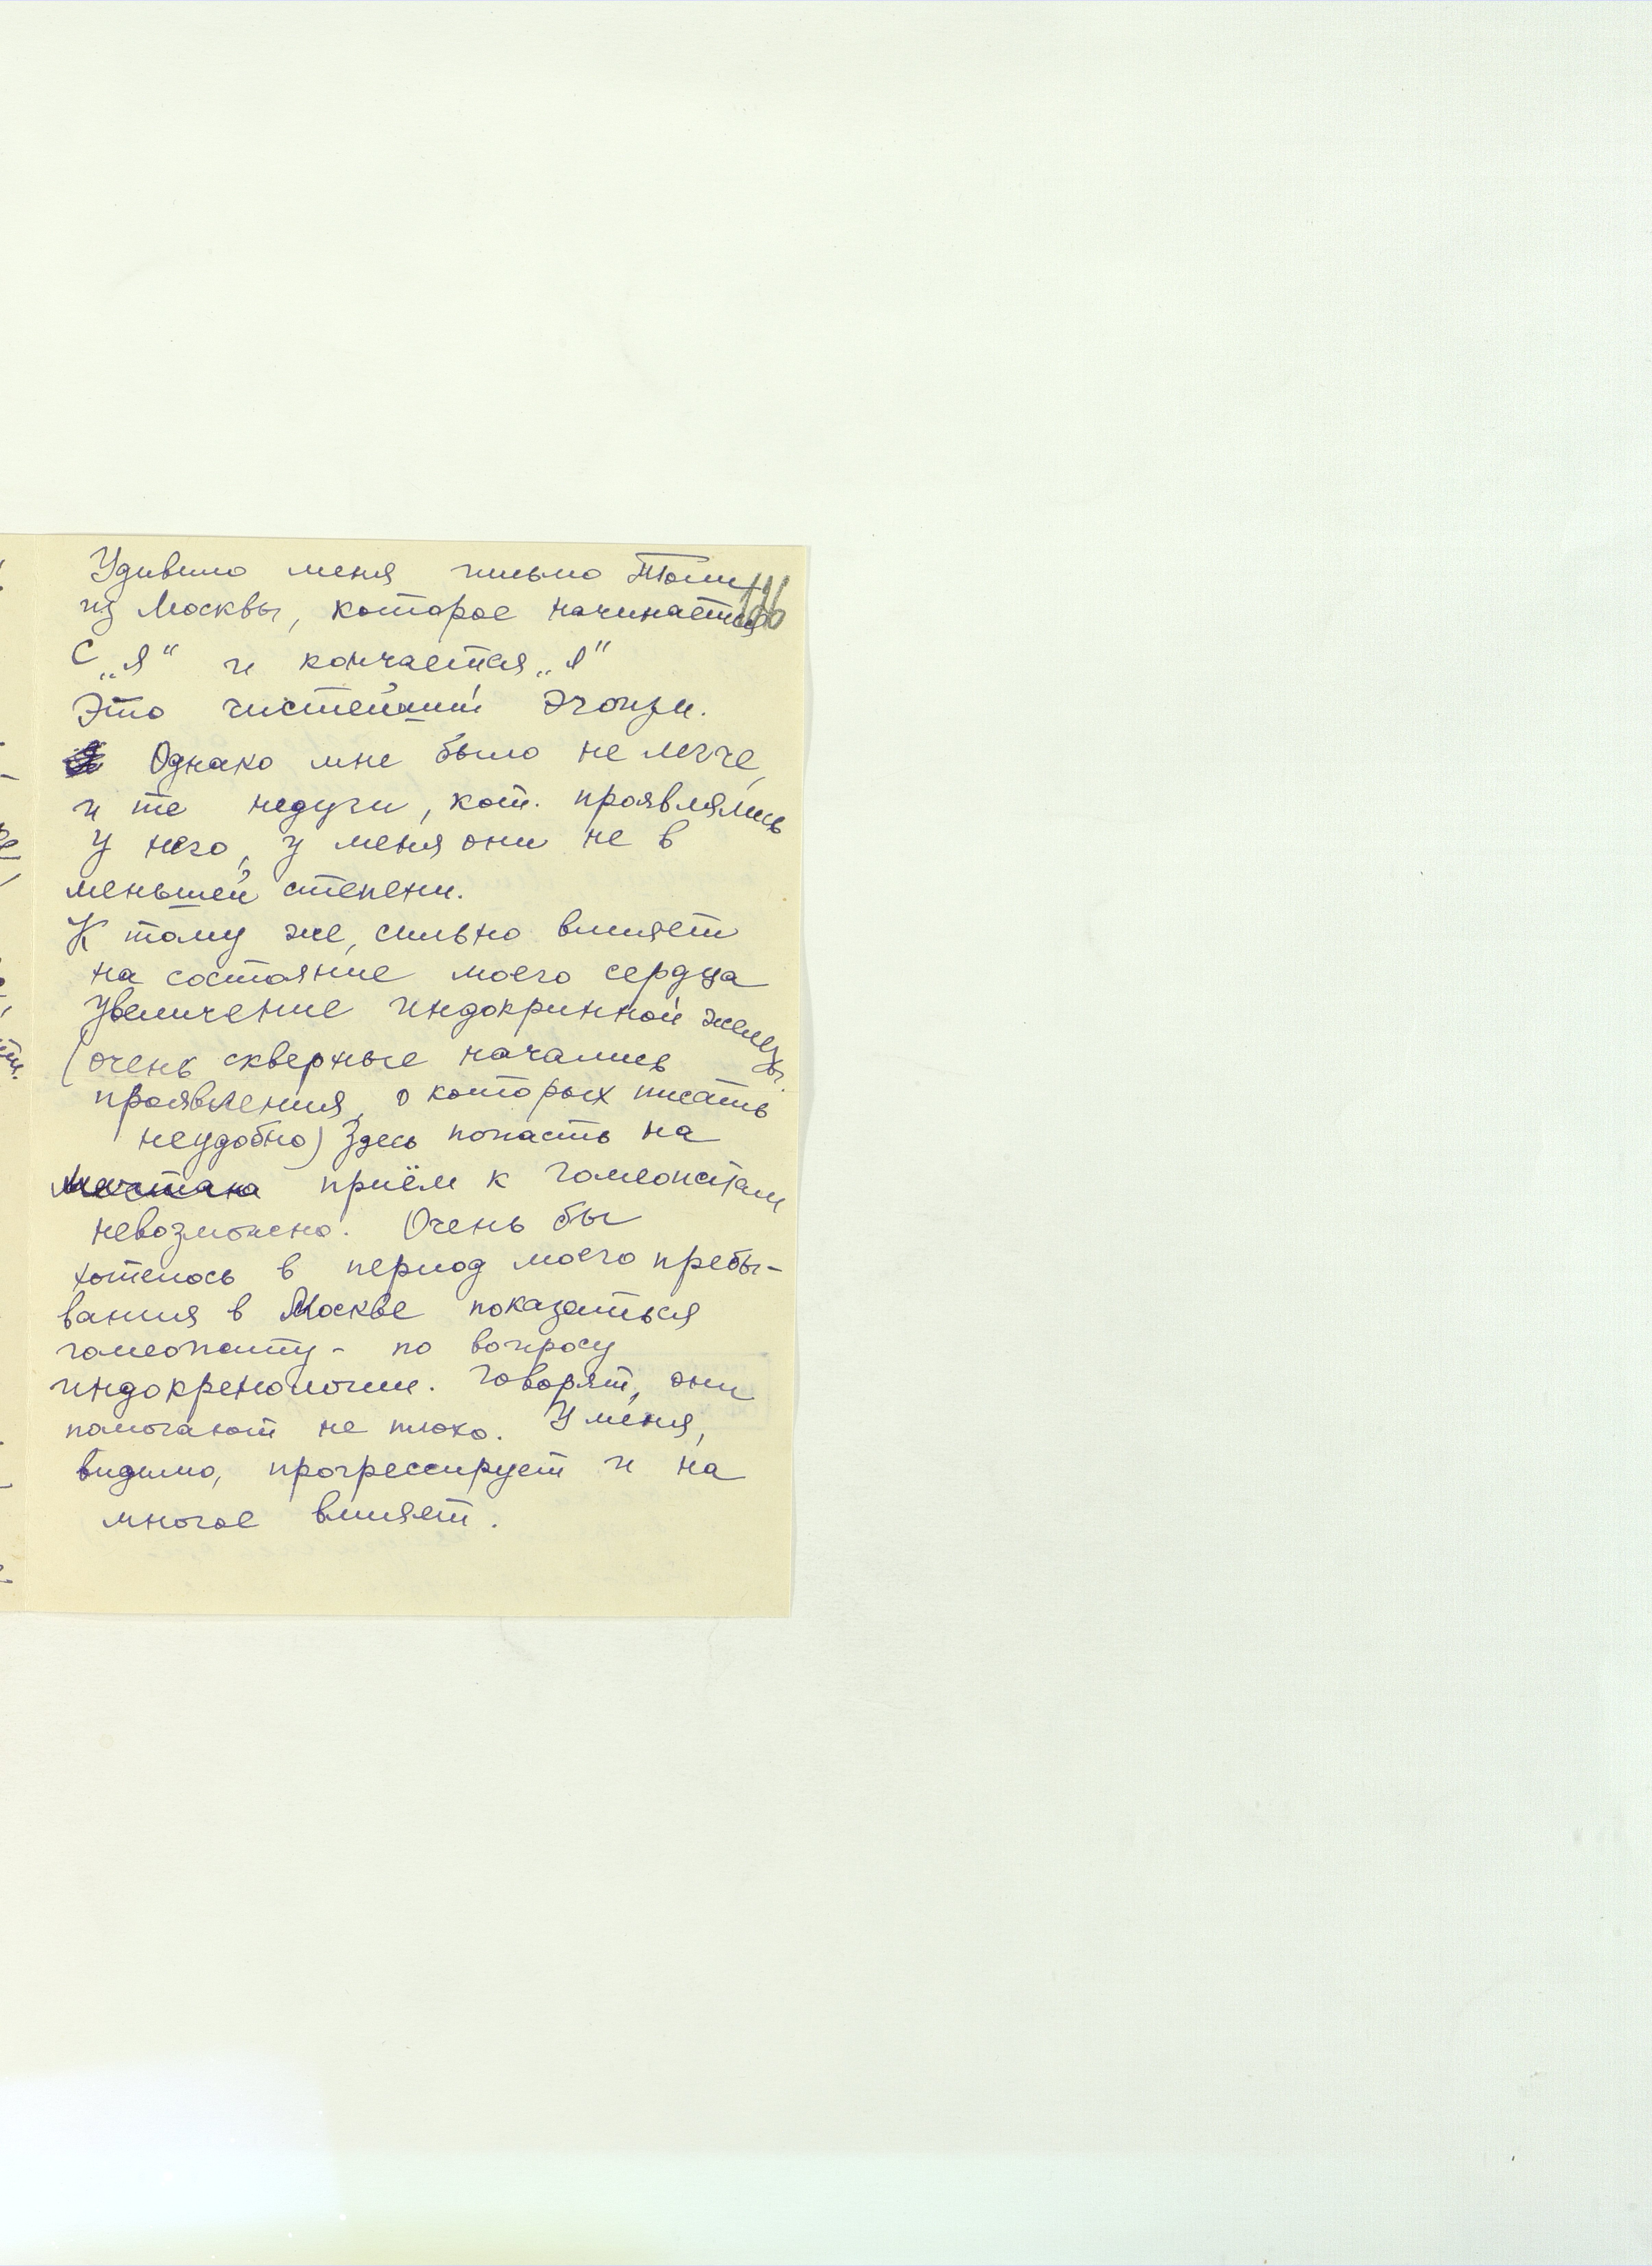 Удивило меня письмо Толи
из Москвы, которое начинается
с „я“ и кончается „я“
Это чистейший эгоизм.
Однако мне было не легче,
и те недуги, кот. проявлялись
у него, у меня они не в
меньшей степени.
К тому же, сильно влияет
на состояние моего сердца
увеличение индокринной железы.
(очень скверные начались
проявления, о которых писать
неудобно) Здесь попасть на
приём к гомеопатам
невозможно. Очень бы
хотелось в период моего пребы-
вания в Москве показаться
гомеопату - по вопросу
индокренологии. Говорят, они
помогают не плохо. У меня,
видимо, прогрессирует и на
многое влияет.